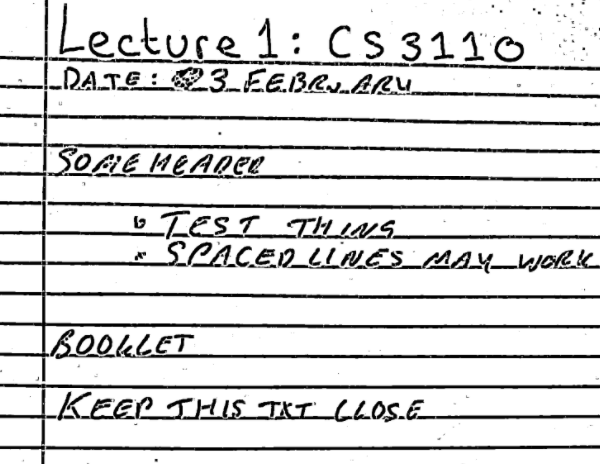 Lecture 1: CS 3110
DATE: 3 FEBRUARY
SOME HEADER
TEST THING
SPACED LINES MAY WORK
BOOKLET
KEEP THIS TXT CLOSE